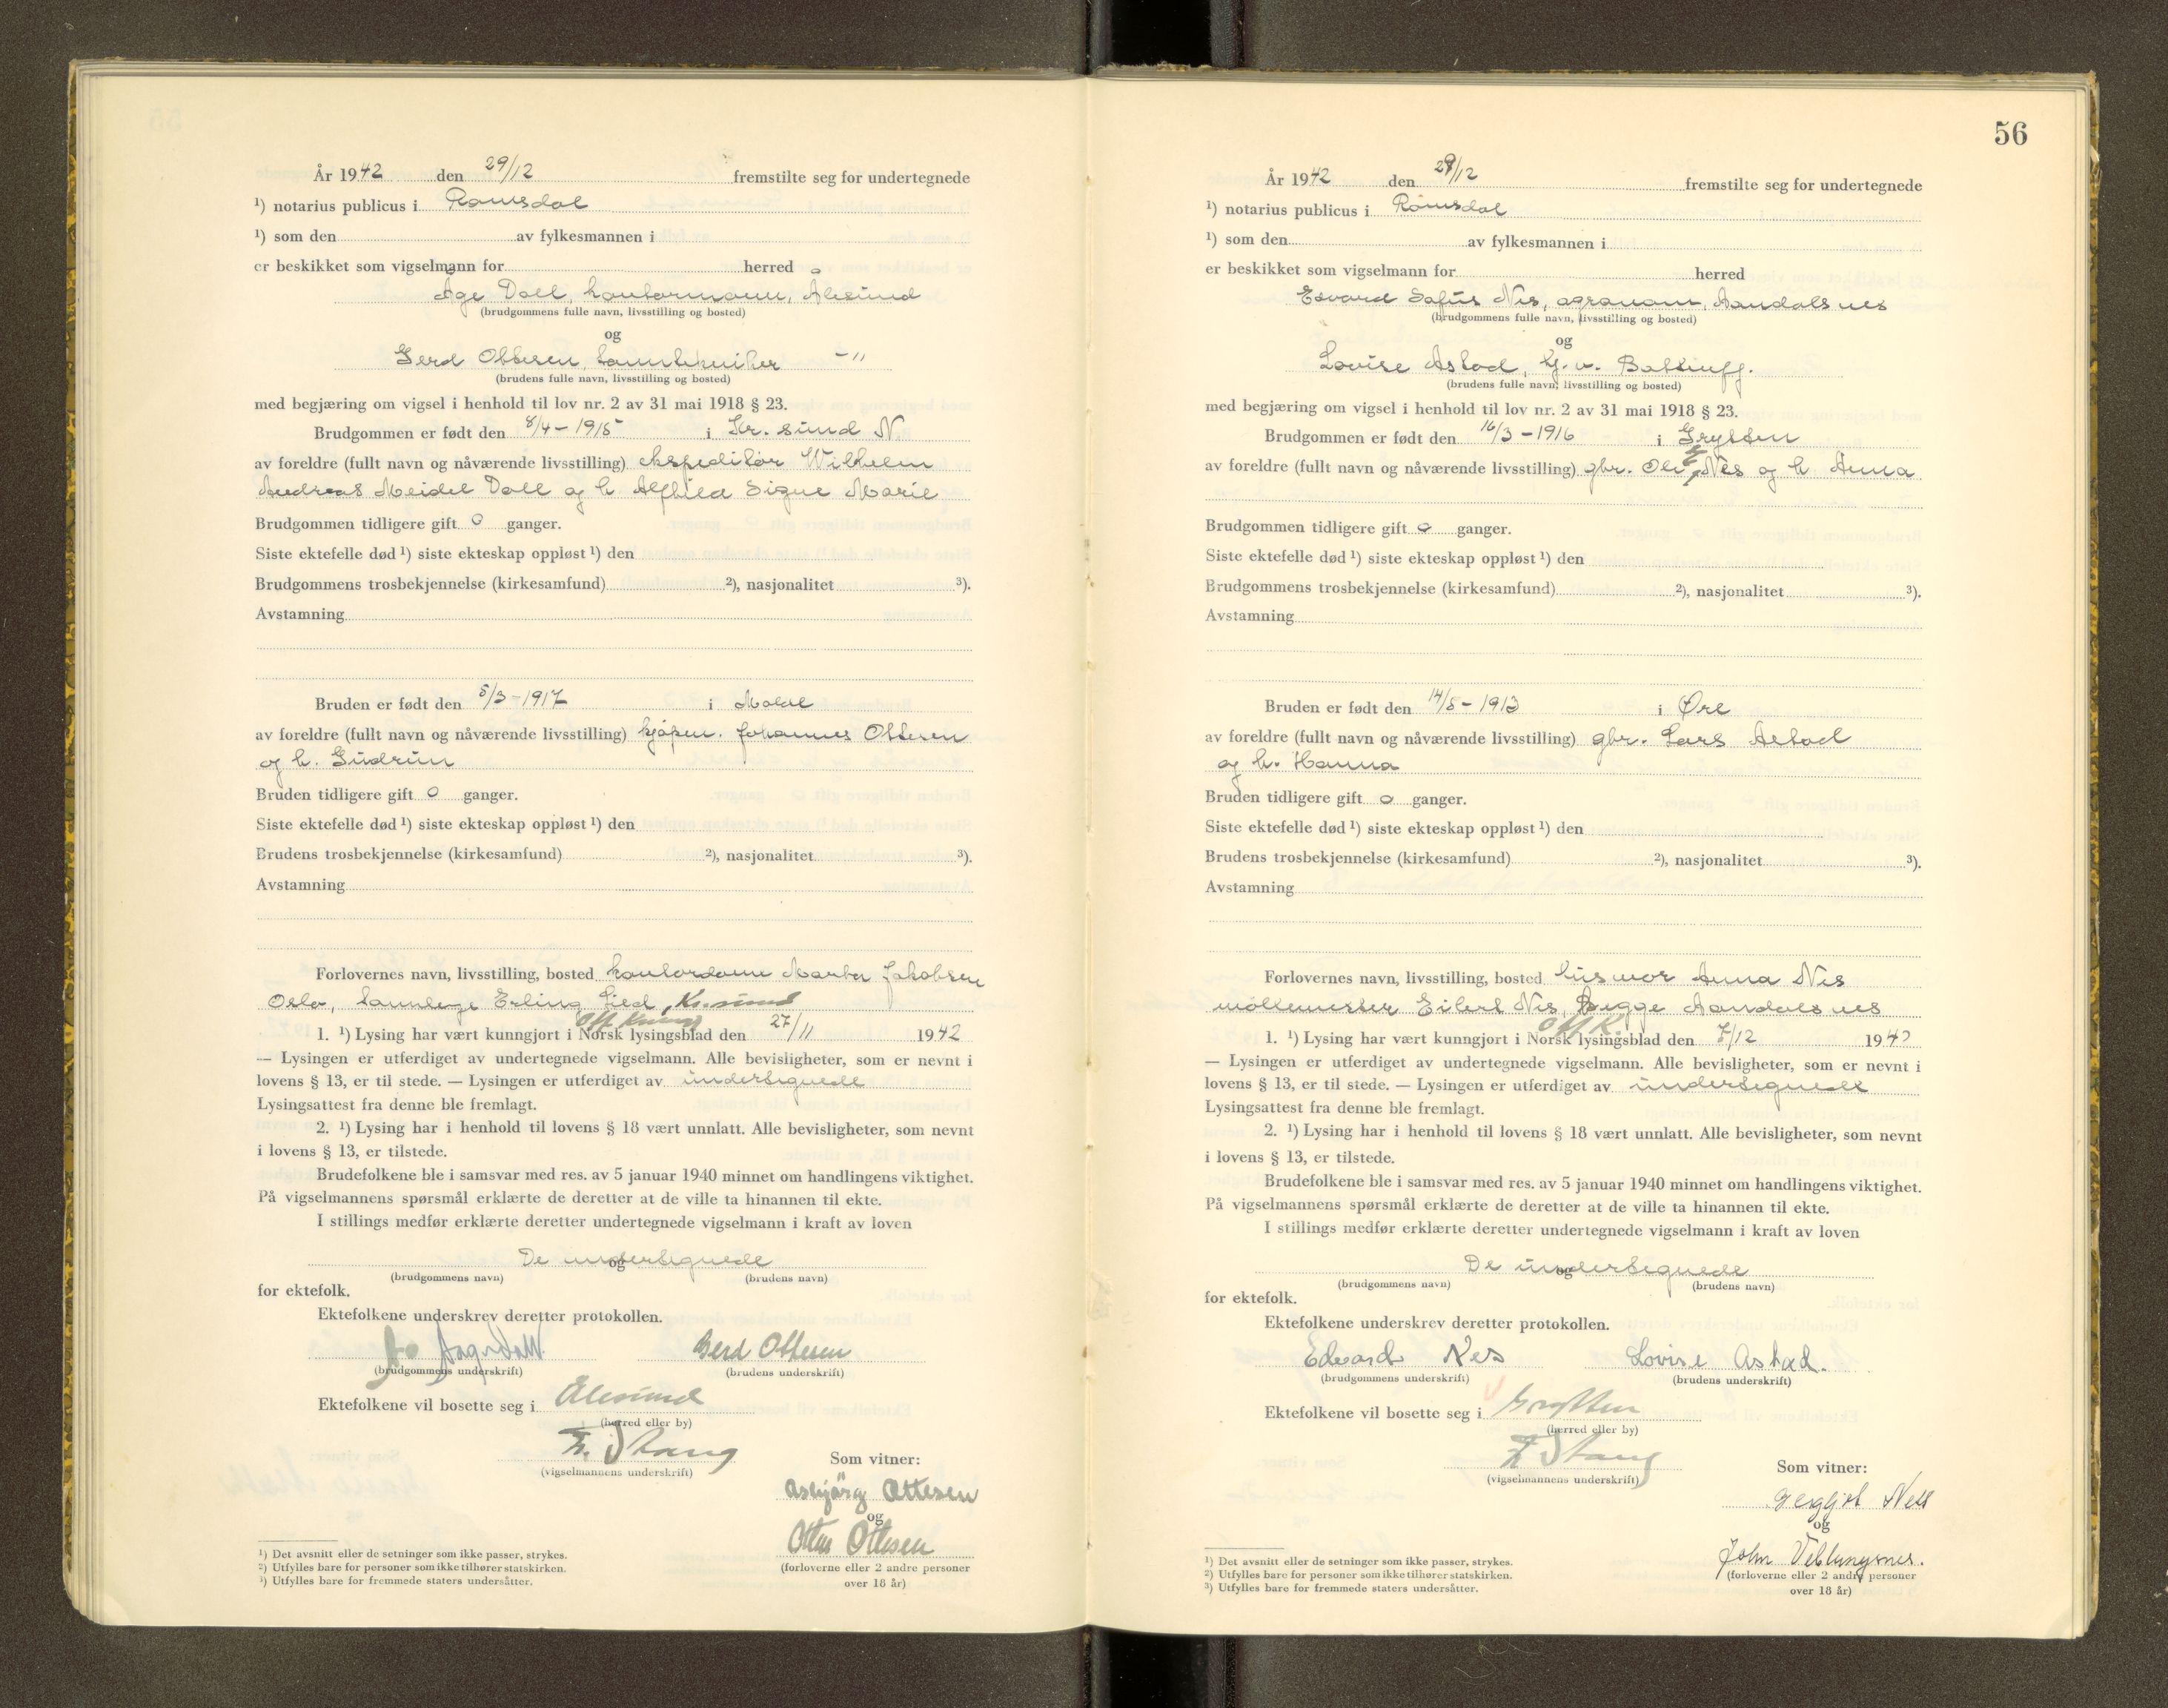 År 1942 den 29/12 fremstilte seg for undertegnede
¹) notarius publicus i Romsdal
¹) som den av fylkesmannen i
er beskikket som vigselmann for herred
Åge Dall, kontormann, Ålesund
(brudgommens fulle navn, livsstilling og bosted)
og
Gerd Ottesen, tanntekniker -"
(brudens fulle navn, livsstilling og bosted)
med begjæring om vigsel i henhold til lov nr. 2 av 31 mai 1918 § 23.
Brudgommen er født den 8/4-1915 i Kr.sund N.
av foreldre (fullt navn og nåværende livsstilling) ekspeditør Wilhelm
Andreas Meidel Dall og h. Alfhild Signe Marie
Brudgommen tidligere gift 0 ganger.
Siste ektefelle død ¹) siste ekteskap oppløst ¹) den
Brudgommens trosbekjennelse (kirkesamfund) ²), nasjonalitet ³).
Avstamning
Bruden er født den 5/3-1917 i Molde
av foreldre (fullt navn og nåværende livsstilling) kjøpm. Johannes Ottesen
og h. Gudrun
Bruden tidligere gift 0 ganger.
Siste ektefelle død ¹) siste ekteskap oppløst ¹) den
Brudens trosbekjennelse (kirkesamfund) ²), nasjonalitet ³).
Avstamning
Forlovernes navn, livsstilling, bosted kontordame Jakobsen
Oslo, tannlege Erling Lied, Kr.sund
1. ¹) Lysing har vært kunngjort i Norsk lysingsblad den 27/11 1942
— Lysingen er utferdiget av undertegnede vigselmann. Alle bevisligheter, som er nevnt i
lovens § 13, er til stede. — Lysingen er utferdiget av undertegnede
Lysingsattest fra denne ble fremlagt.
2. ¹) Lysing har i henhold til lovens § 18 vært unnlatt. Alle bevisligheter, som nevnt
i lovens § 13, er tilstede.
Brudefolkene ble i samsvar med res. av 5 januar 1940 minnet om handlingens viktighet.
På vigselmannens spørsmål erklærte de deretter at de ville ta hinannen til ekte.
I stillings medfør erklærte deretter undertegnede vigselmann i kraft av loven
De undertegnede
og
(brudgommens navn) (brudens navn)
for ektefolk.
Ektefolkene underskrev deretter protokollen.
Åage Dall. Gerd Ottesen
(brudgommens underskrift) (brudens underskrift)
Ektefolkene vil bosette seg i Ålesund
(herred eller by)
E. Stang
(vigselmannens underskrift)
Som vitner:
Asbjörg Ottesen
og
Ottar Ottesen
(forloverne eller 2 andre personer
over 18 år)
¹) Det avsnitt eller de setninger som ikke passer, strykes.
²) Utfylles bare for personer som ikke tilhører statskirken.
³) Utfylles bare for fremmede staters undersåtter.
56
År 1942 den 29/12 fremstilte seg for undertegnede
¹) notarius publicus i Romsdal
¹) som den av fylkesmannen i
er beskikket som vigselmann for herred
Edvard Sofus Nes, agronom, Aandalsnes
(brudgommens fulle navn, livsstilling og bosted)
og
Lovise Astad, Battenfj.
(brudens fulle navn, livsstilling og bosted)
med begjæring om vigsel i henhold til lov nr. 2 av 31 mai 1918 § 23.
Brudgommen er født den 16/3-1916 i Grytten
av foreldre (fullt navn og nåværende livsstilling) gbr. Ole E. Nes og h. Anna
Brudgommen tidligere gift 0 ganger.
Siste ektefelle død ¹) siste ekteskap oppløst ¹) den
Brudgommens trosbekjennelse (kirkesamfund) ²), nasjonalitet ³).
Avstamning
Bruden er født den 14/5-1913 i Øre
av foreldre (fullt navn og nåværende livsstilling) gbr. Lars Astad
og h. Hanna
Bruden tidligere gift 0 ganger.
Siste ektefelle død ¹) siste ekteskap oppløst ¹) den
Brudens trosbekjennelse (kirkesamfund) ²), nasjonalitet ³).
Avstamning
Forlovernes navn, livsstilling, bosted husmor Anna Nes
møllemester Eilert Nes, begge Aandalsnes
Off K.
1. ¹) Lysing har vært kunngjort i Norsk lysingsblad den 7/12 1942
— Lysingen er utferdiget av undertegnede vigselmann. Alle bevisligheter, som er nevnt i
lovens § 13, er til stede. — Lysingen er utferdiget av undertegnede
Lysingsattest fra denne ble fremlagt.
2. ¹) Lysing har i henhold til lovens § 18 vært unnlatt. Alle bevisligheter, som nevnt
i lovens § 13, er tilstede.
Brudefolkene ble i samsvar med res. av 5 januar 1940 minnet om handlingens viktighet.
På vigselmannens spørsmål erklærte de deretter at de ville ta hinannen til ekte.
I stillings medfør erklærte deretter undertegnede vigselmann i kraft av loven
De undertegnede
og
(brudgommens navn) (brudens navn)
for ektefolk.
Ektefolkene underskrev deretter protokollen.
Edvard Nes Lovise Astad.
(brudgommens underskrift) (brudens underskrift)
Ektefolkene vil bosette seg i Grytten
(herred eller by)
E Stang
(vigselmannens underskrift)
Som vitner:
Nes
og
John Veblungsnes.
(forloverne eller 2 andre personer
over 18 år)
¹) Det avsnitt eller de setninger som ikke passer, strykes.
²) Utfylles bare for personer som ikke tilhører statskirken.
³) Utfylles bare for fremmede staters undersåtter.